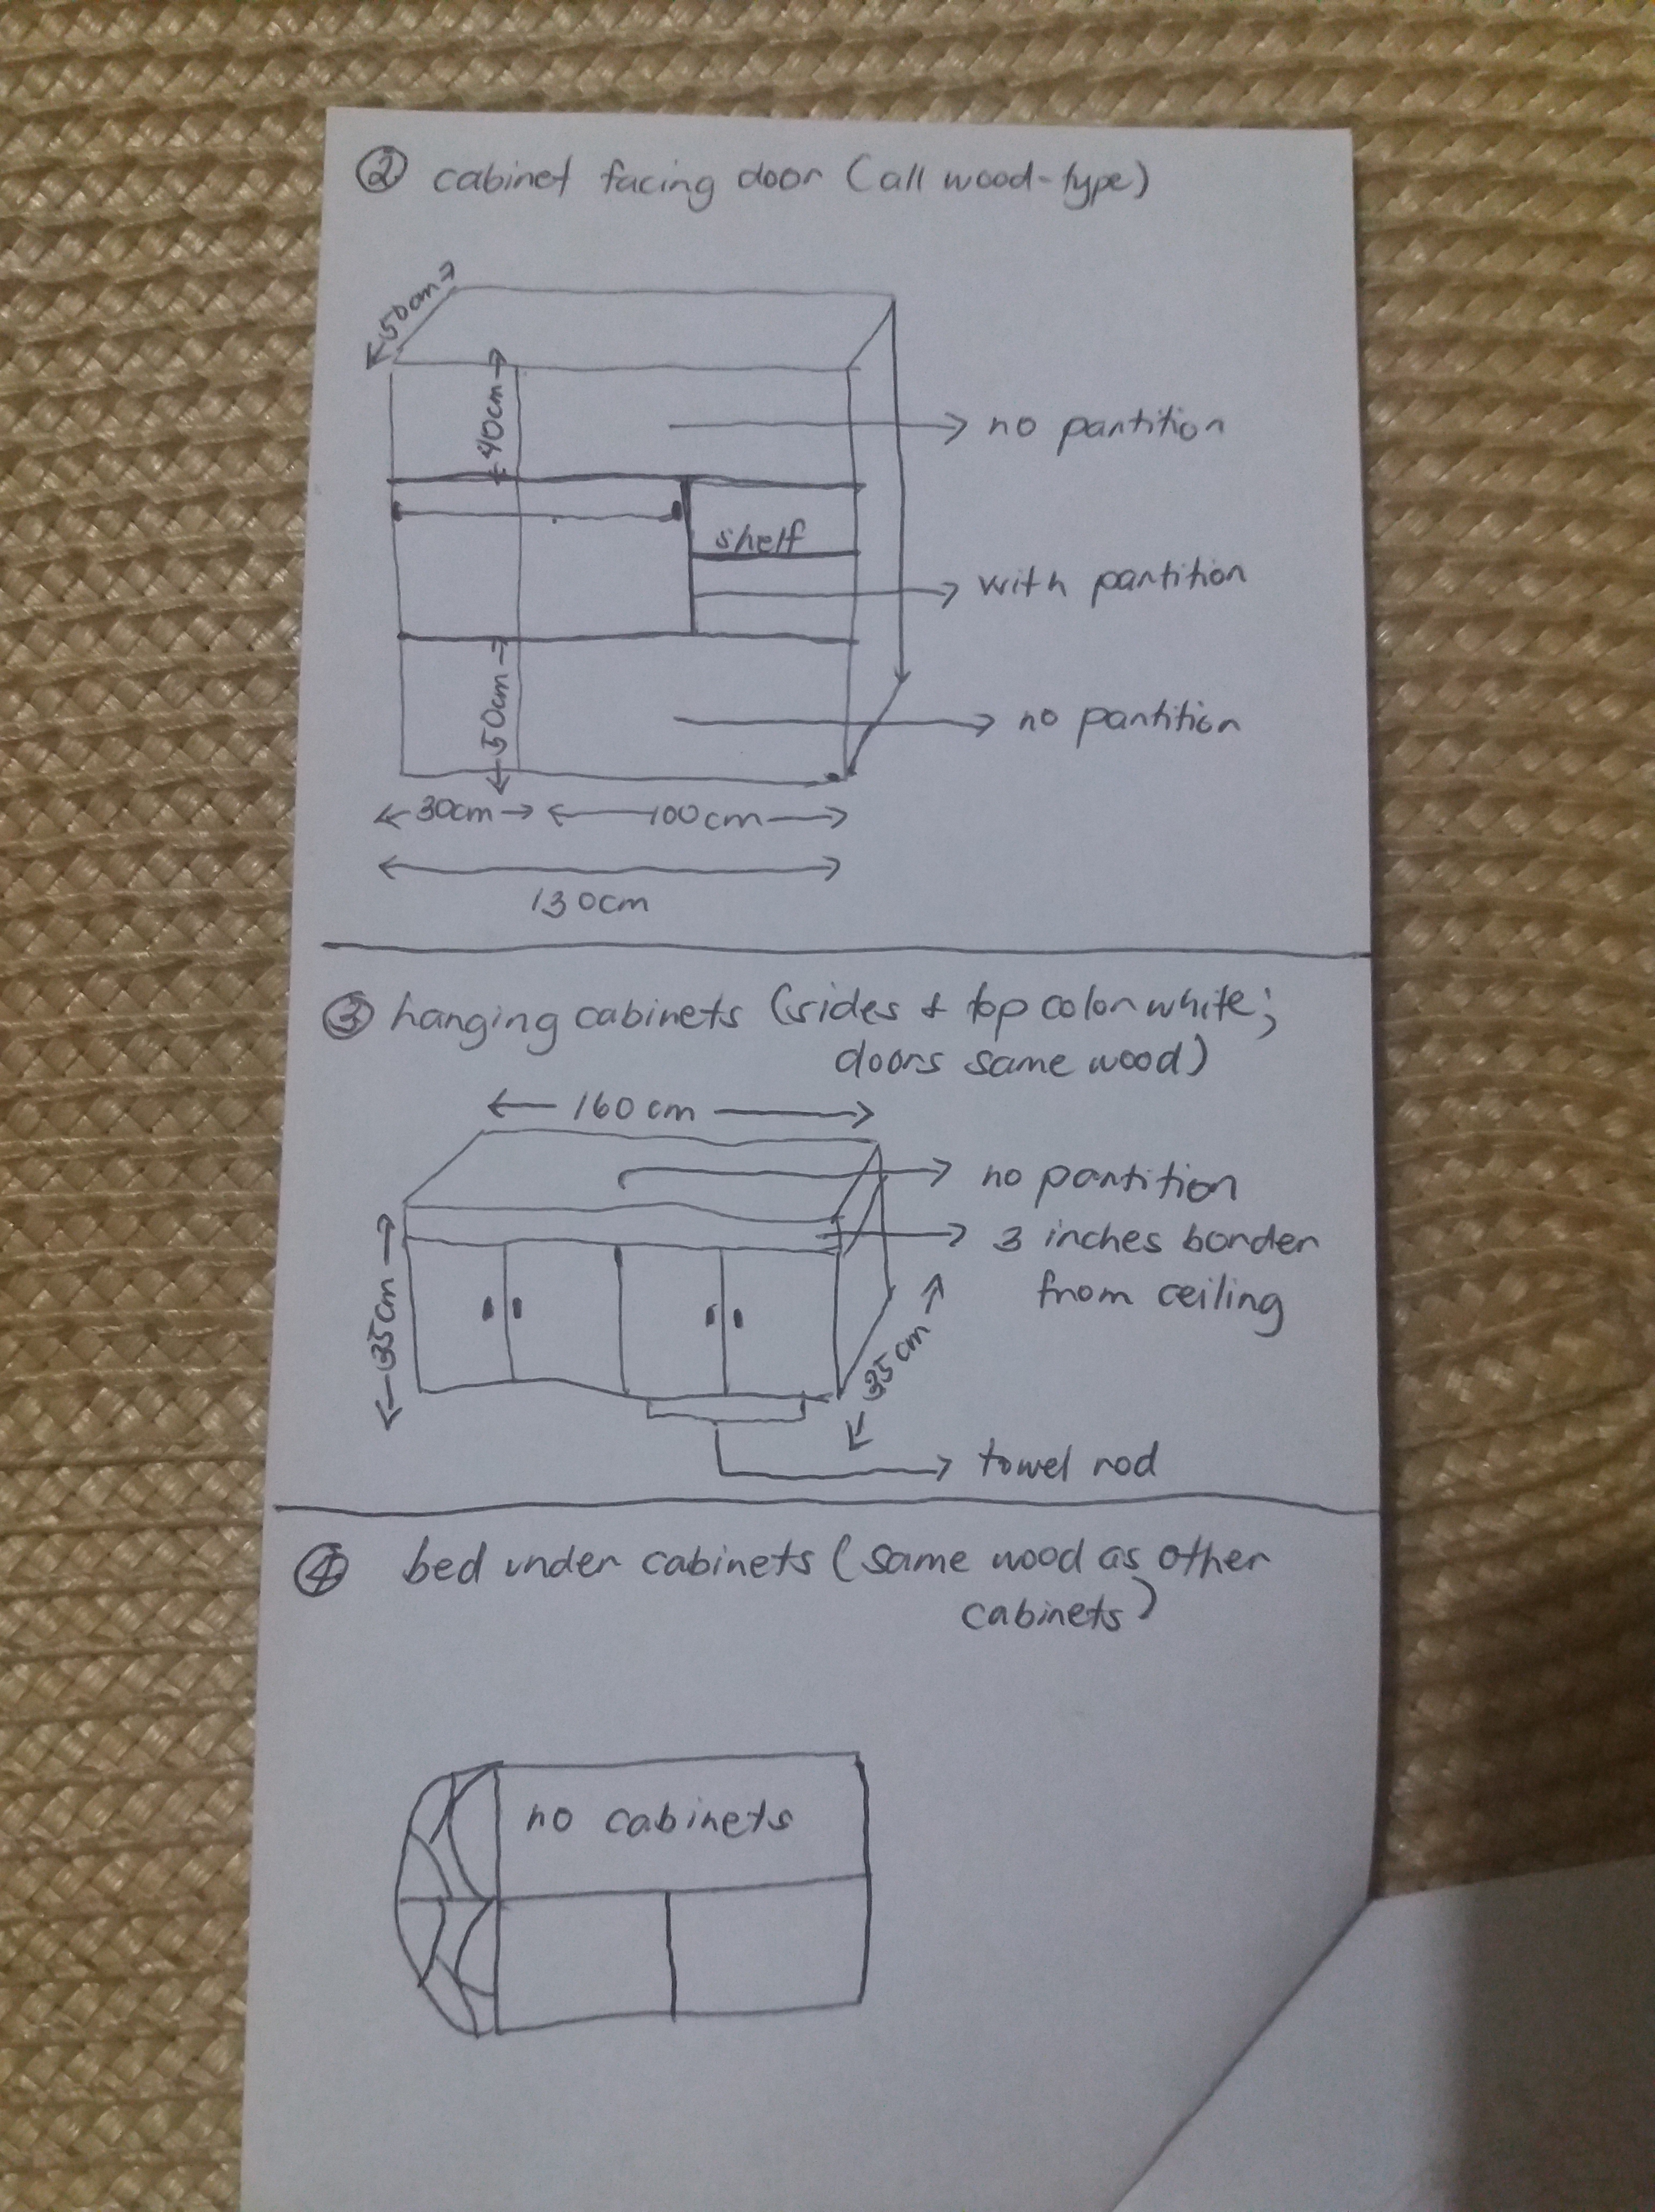 ② cabinet facing door (all wood-type)
50cm
40cm
no partition
shelf
with partition
50cm
no partition
30cm
100cm
130cm
③ hanging cabinets (sides & top color white;
doors same wood)
160cm
no partition
3 inches border
from ceiling
35cm
35cm
towel rod
④ bed under cabinets (same wood as other
cabinets)
no cabinets